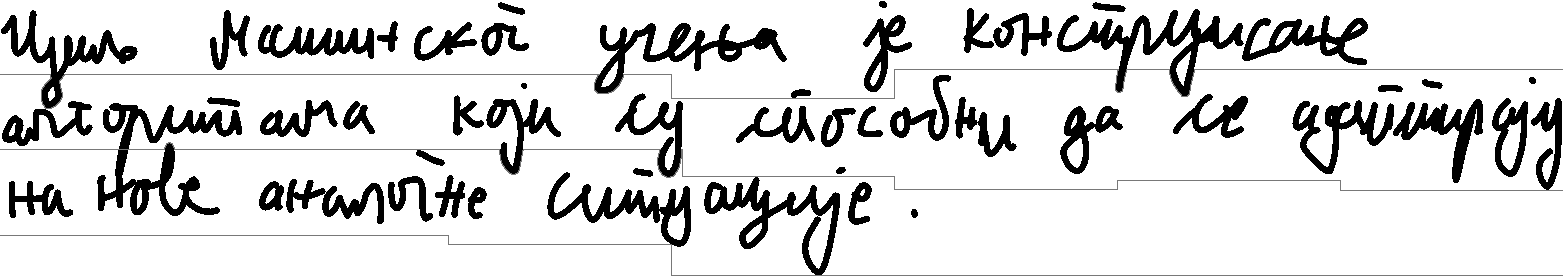 Циљ Машинског учења је конструисање
алгоритама који су способни да се адаптирају
на нове аналогне ситуације.